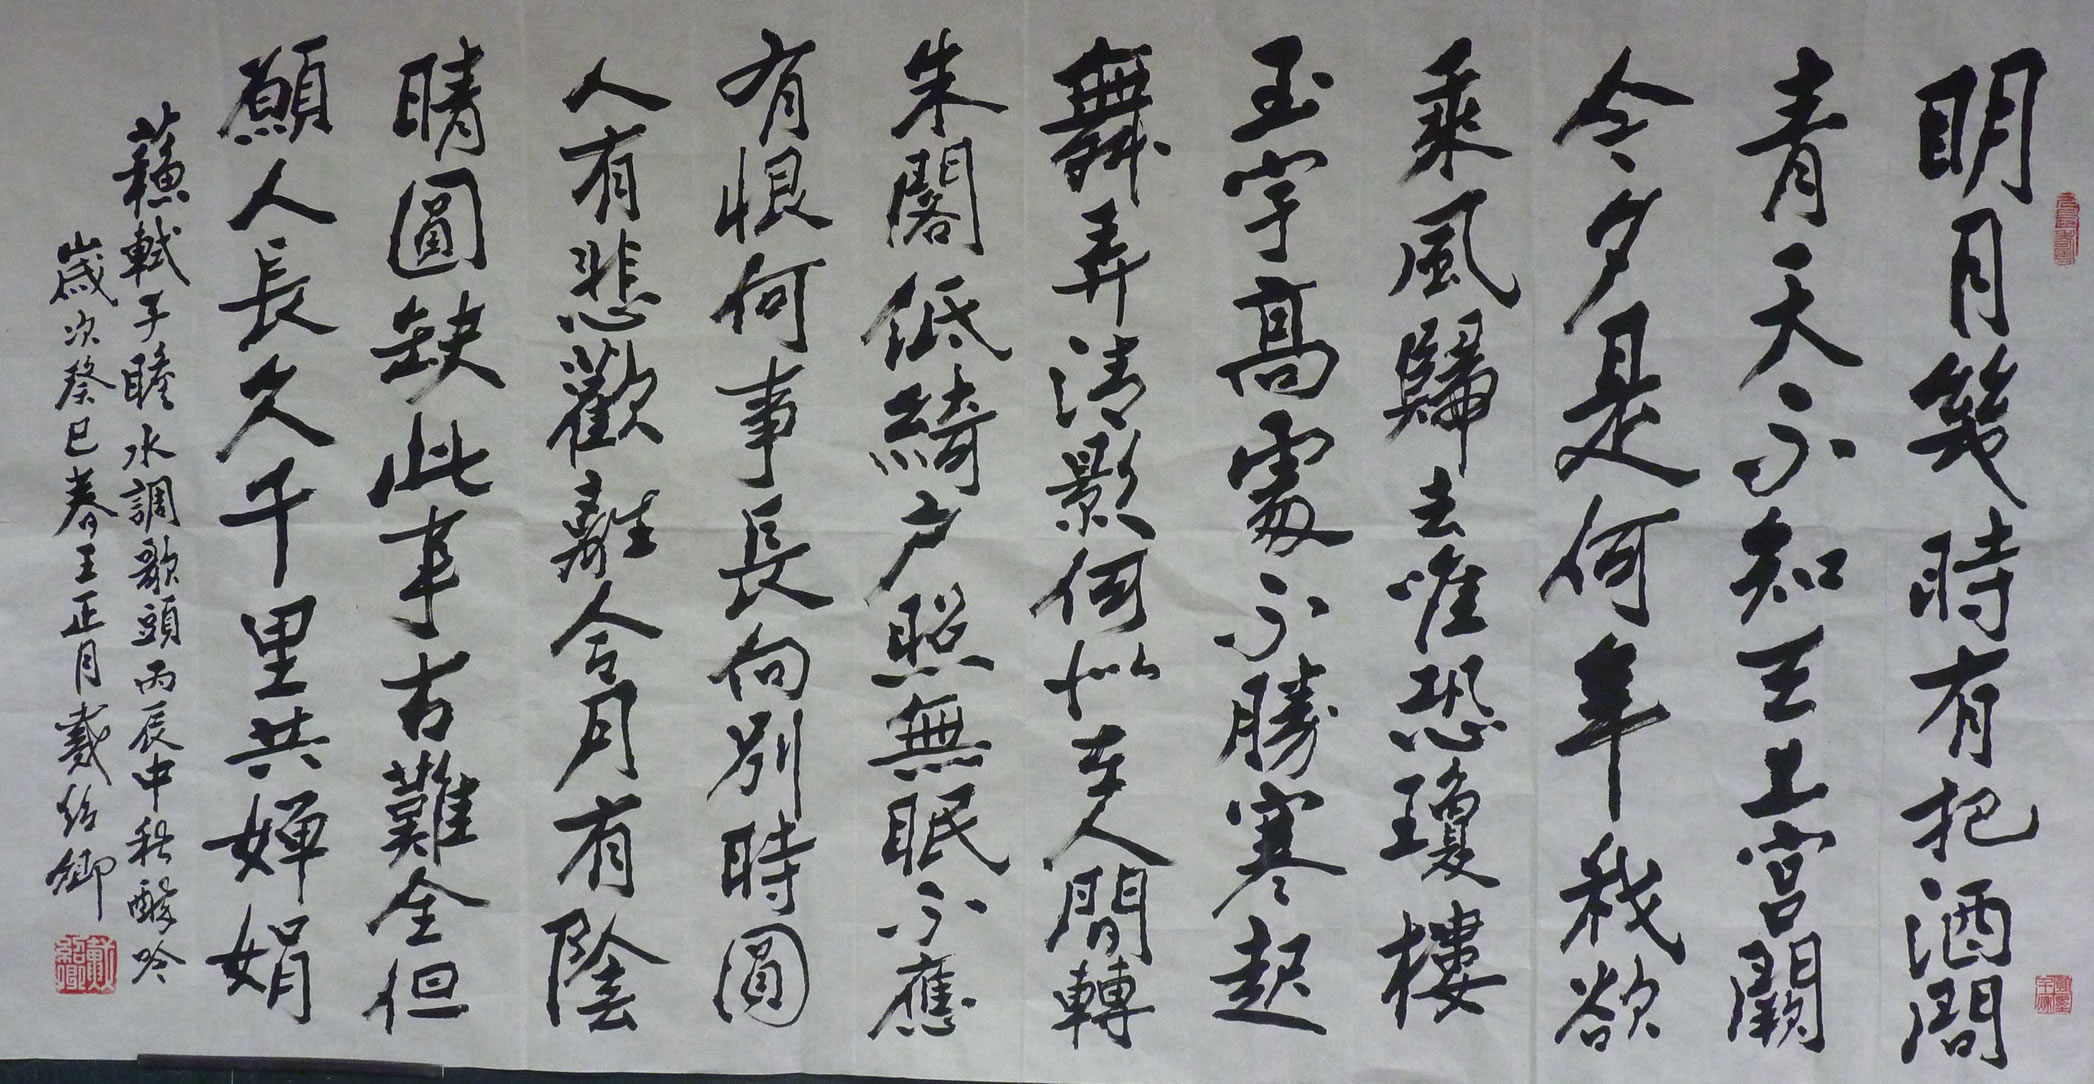 明月幾時有把酒問
青天不知天上宮闕
今夕是何年我欲
乘風歸去唯恐瓊樓
玉宇高處不勝寒起
舞弄清影何似在人間轉
朱閣低綺户照無眠不應
有恨何事長向別時圓
人有悲歡離合月有陰
晴圓缺此事古難全但
願人長久千里共嬋娟
蘇軾子瞻水調歌頭丙辰中秋醉吟
歲次癸巳春王正月戴紹卿
戴紹卿